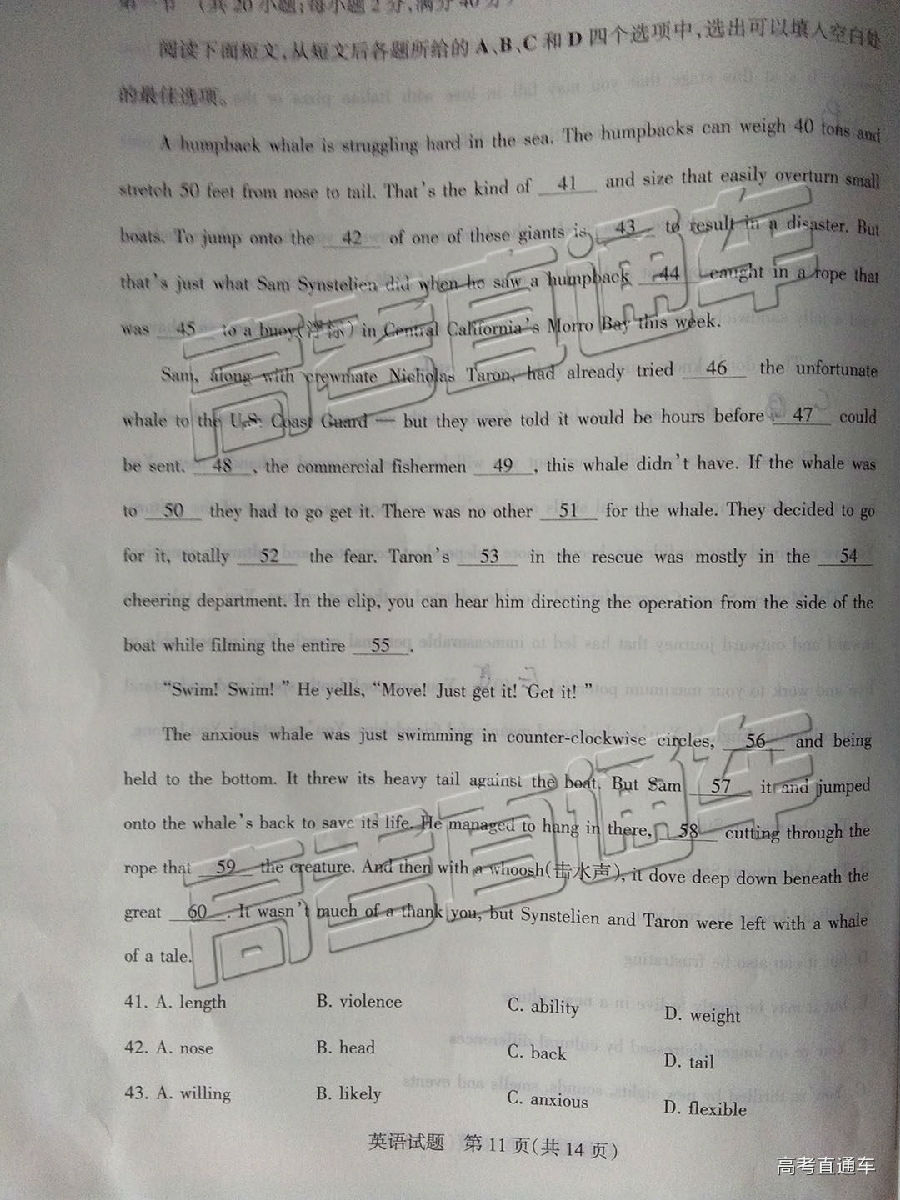 第一节 (共20小题;每小题2分,满分40分)
阅读下面短文,从短文后各题所给的A、B、C和D四个选项中,选出可以填入空白处
的最佳选项。
A humpback whale is struggling hard in the sea. The humpbacks can weigh 40 tons and
stretch 50 feet from nose to tail. That's the kind of 41 and size that easily overturn small
boats. To jump onto the 42 of one of these giants is 43 to result in a disaster. But
that's just what Sam Synstelien did when he saw a humpback 44 caught in a rope that
was 45 to a buoy(浮标) in Central California's Morro Bay this week.
Sam, along with crewmate Nicholas Taron, had already tried 46 the unfortunate
whale to the U.S. Coast Guard — but they were told it would be hours before 47 could
be sent. 48 , the commercial fishermen 49 , this whale didn't have. If the whale was
to 50 they had to go get it. There was no other 51 for the whale. They decided to go
for it, totally 52 the fear. Taron's 53 in the rescue was mostly in the 54
cheering department. In the clip, you can hear him directing the operation from the side of the
boat while filming the entire 55 .
"Swim! Swim!" He yells, "Move! Just get it! Get it!"
The anxious whale was just swimming in counter-clockwise circles, 56 and being
held to the bottom. It threw its heavy tail against the boat. But Sam 57 it and jumped
onto the whale's back to save its life. He managed to hang in there, 58 cutting through the
rope that 59 the creature. And then with a whoosh(击水声), it dove deep down beneath the
great 60 . It wasn't much of a thank you, but Synstelien and Taron were left with a whale
of a tale.
41. A. length B. violence C. ability D. weight
42. A. nose B. head C. back D. tail
43. A. willing B. likely C. anxious D. flexible
英语试题 第11页(共14页)
高考直通车
高考直通车
高考直通车